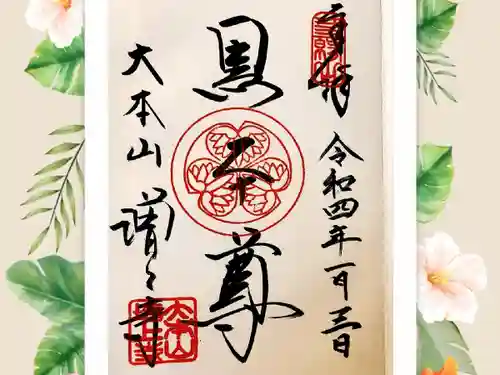 奉拝 令和四年一月三日
黒本尊
大本山 増上寺